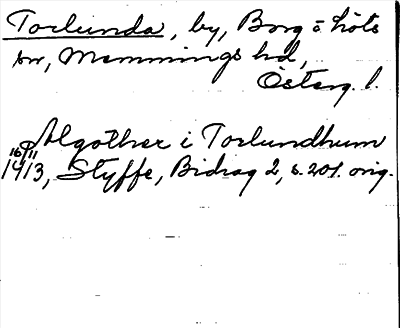 Torlunda, by, Borg o. Löts
sn, Memmings hd,
Österg. l.
Algother i Torlundhum
16/11 1413, Styffe, Bidrag 2, s. 201. orig.